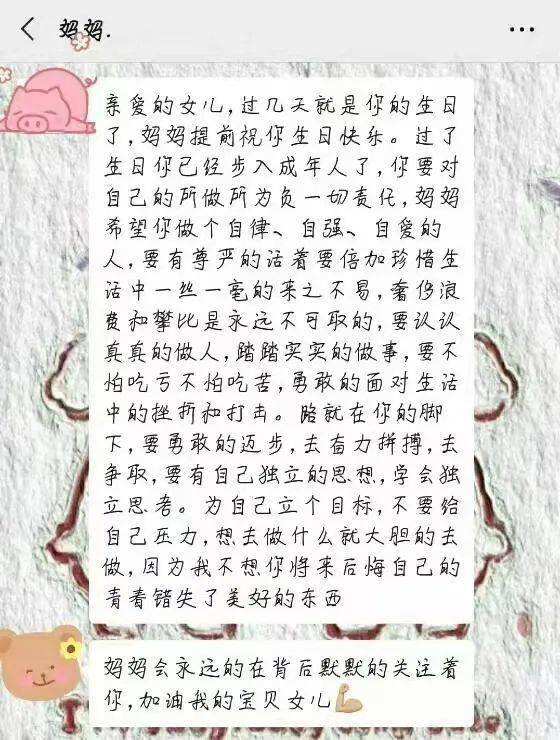 妈妈.
亲爱的女儿,过几天就是你的生日
了,妈妈提前祝你生日快乐。过了
生日你已经步入成年人了,你要对
自己的所做所为负一切责任,妈妈
希望你做个自律、自强、自爱的
人,要有尊严的活着要倍加珍惜生
活中一丝一毫的来之不易,奢侈浪
费和攀比是永远不可取的,要认认
真真的做人,踏踏实实的做事,要不
怕吃亏不怕吃苦,勇敢的面对生活
中的挫折和打击。路就在你的脚
下,要勇敢的迈步,去奋力拼搏,去
争取,要有自己独立的思想,学会独
立思考。为自己立个目标,不要给
自己压力,想去做什么就大胆的去
做,因为我不想你将来后悔自己的
青春错失了美好的东西
妈妈会永远的在背后默默的关注着
你,加油我的宝贝女儿💪🏼